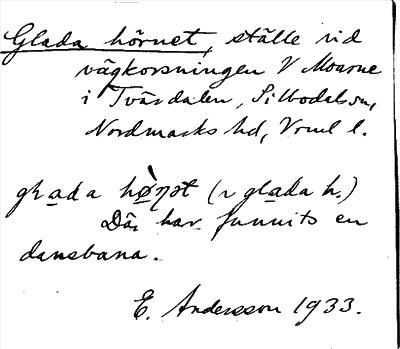 Glada hörnet, ställe vid
vägkorsningen V Moarne
i Tvärdalen, Silbodals sn,
Nordmarks hd, Vrml l.
glada hø̀ṇət (r glada h.)
Där har funnits en
dansbana.
E. Andersson 1933.